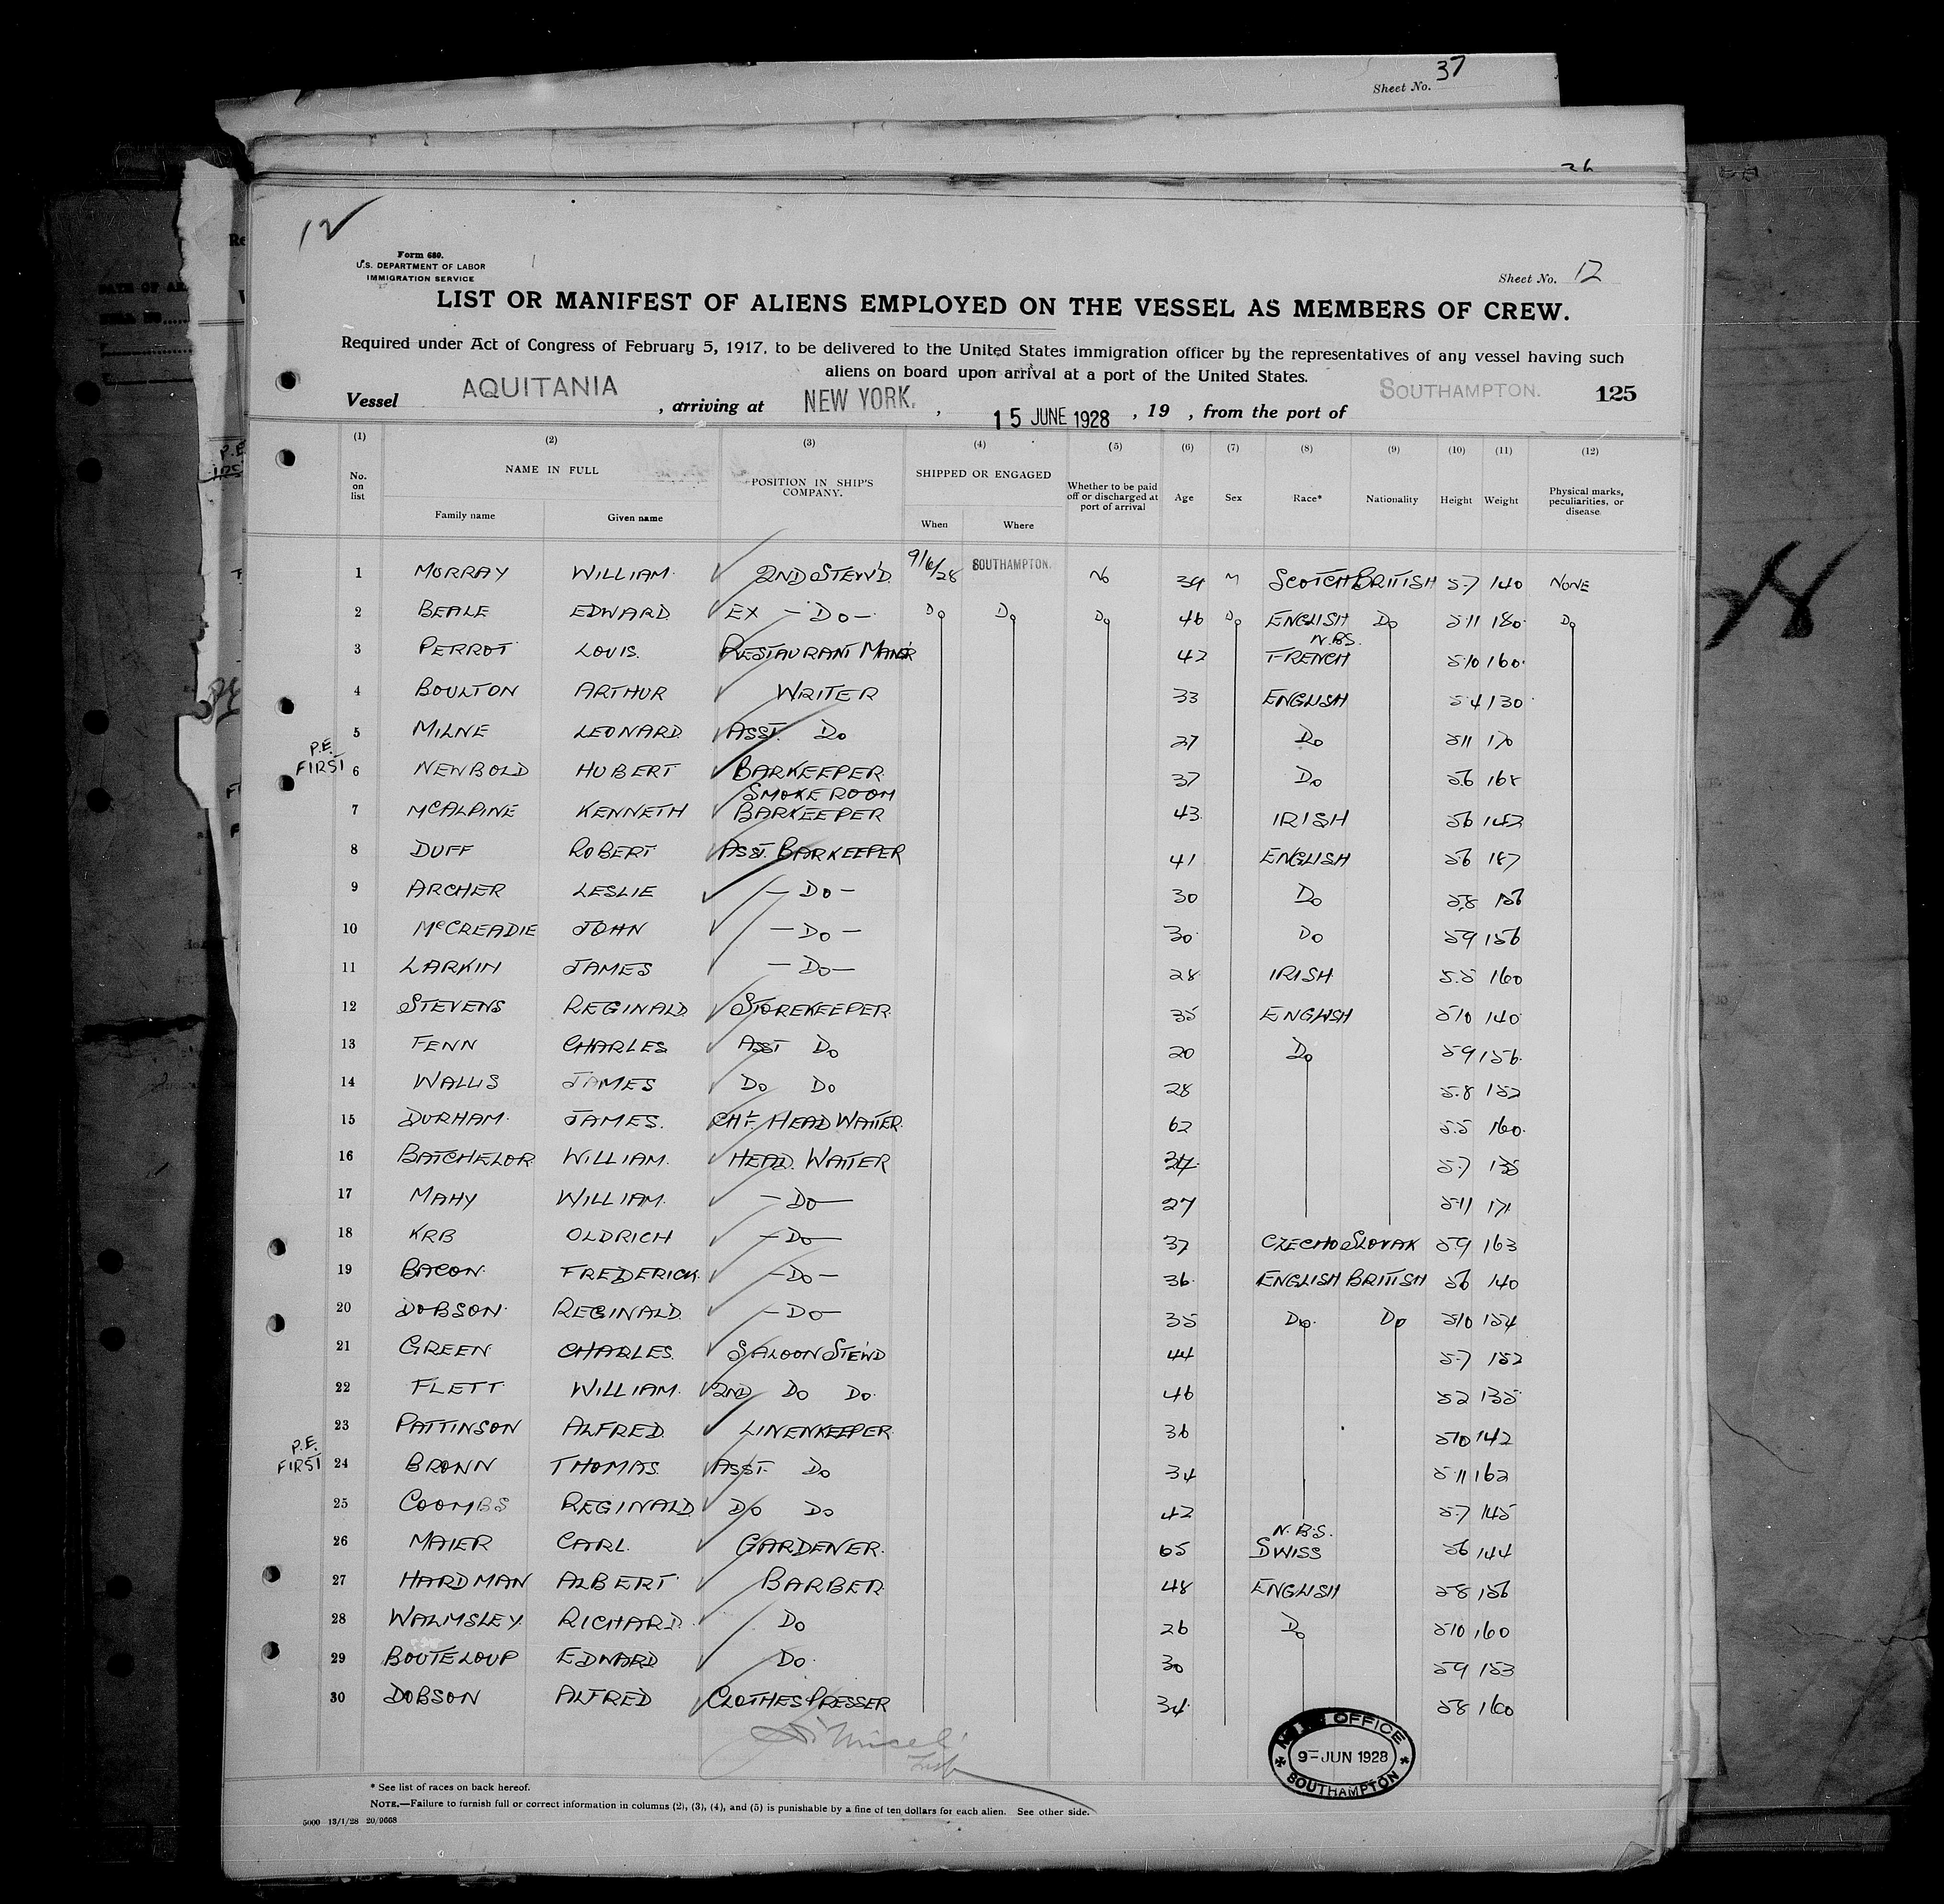 Sheet No. 37
26
12
Form 680.
U.S. DEPARTMENT OF LABOR
IMMIGRATION SERVICE
Sheet No. 12
LIST OR MANIFEST OF ALIENS EMPLOYED ON THE VESSEL AS MEMBERS OF CREW.
Required under Act of Congress of February 5, 1917, to be delivered to the United States immigration officer by the representatives of any vessel having such
aliens on board upon arrival at a port of the United States.
Vessel AQUITANIA, arriving at NEW YORK., 15 JUNE 1928, 19 , from the port of SOUTHAMPTON. 125
(1) (2) (3) (4) (5) (6) (7) (8) (9) (10) (11) (12)
No. on list NAME IN FULL POSITION IN SHIP'S COMPANY. SHIPPED OR ENGAGED Whether to be paid off or discharged at port of arrival Age Sex Race* Nationality Height Weight Physical marks, peculiarities, or disease.
Family name Given name When Where
1 MURRAY WILLIAM 2ND STEW'D 9/6/28 SOUTHAMPTON. NO 39 M SCOTCH BRITISH 5-7 140 NONE
2 BEALE EDWARD EX - DO - DO DO DO 46 DO ENGLISH DO 5 11 180 DO
3 PERROT LOUIS. RESTAURANT MANGR 42 N.BS. FRENCH 5 10 160
4 BOULTON ARTHUR WRITER 33 ENGLISH 5 4 130
5 MILNE LEONARD ASST. DO 27 DO 5 11 170
P.E. FIRST 6 NEWBOLD HUBERT BARKEEPER 37 DO 5 6 168
7 MCALPINE KENNETH SMOKE ROOM BARKEEPER 43 IRISH 5 6 142
8 DUFF ROBERT ASST. BARKEEPER 41 ENGLISH 5 6 187
9 ARCHER LESLIE - DO - 30 DO 5 8 156
10 McCREADIE JOHN - DO - 30 DO 5 9 156
11 LARKIN JAMES - DO - 28 IRISH 5.5 160
12 STEVENS REGINALD STOREKEEPER 35 ENGLISH 5 10 140
13 FENN CHARLES ASST DO 20 DO 5 9 156
14 WALLIS JAMES DO DO 28 5.8 152
15 DURHAM JAMES. CHF. HEAD WAITER 62 5.5 160
16 BATCHELOR WILLIAM. HEAD WAITER 34 5-7 135
17 MAHY WILLIAM. - DO - 27 5-11 171
18 KRB OLDRICH - DO - 37 CZECHO SLOVAK 5 9 163
19 BACON FREDERICK - DO - 36 ENGLISH BRITISH 5 6 140
20 DOBSON REGINALD - DO - 35 DO DO 5 10 154
21 GREEN CHARLES SALOON STEWD 44 5-7 152
22 FLETT WILLIAM 2ND DO DO 46 5 2 135
23 PATTINSON ALFRED LINENKEEPER 36 5 10 142
P.E. FIRST 24 BROWN THOMAS ASST. DO 34 5-11 162
25 COOMBS REGINALD DO DO 42 5-7 145
26 MAIER CARL GARDENER 65 N.B.S. SWISS 5 6 144
27 HARDMAN ALBERT BARBER 48 ENGLISH 5 8 156
28 WALMSLEY RICHARD DO 26 DO 5 10 160
29 BOUTELOUP EDWARD DO 30 5 9 153
30 DOBSON ALFRED CLOTHES PRESSER 34 5 8 160
OFFICE
9-JUN 1928
SOUTHAMPTON
* See list of races on back hereof.
NOTE.—Failure to furnish full or correct information in columns (2), (3), (4), and (5) is punishable by a fine of ten dollars for each alien. See other side.
5000 13/1/28 20/9668